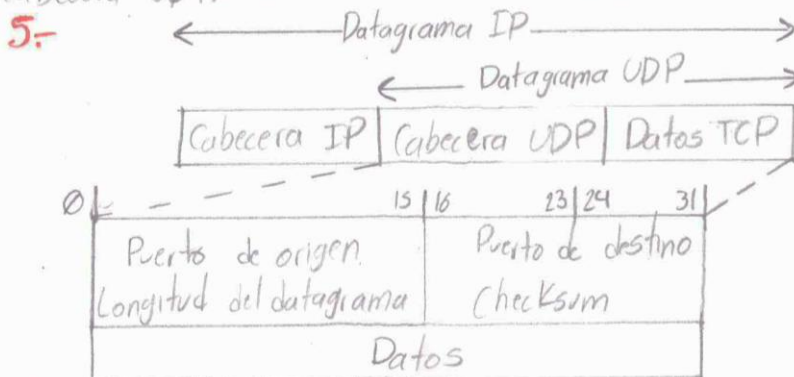 5.-
Datagrama IP
Datagrama UDP
Cabecera IP Cabecera UDP Datos TCP
0 15 16 23 24 31
Puerto de origen Puerto de destino
Longitud del datagrama Checksum
Datos